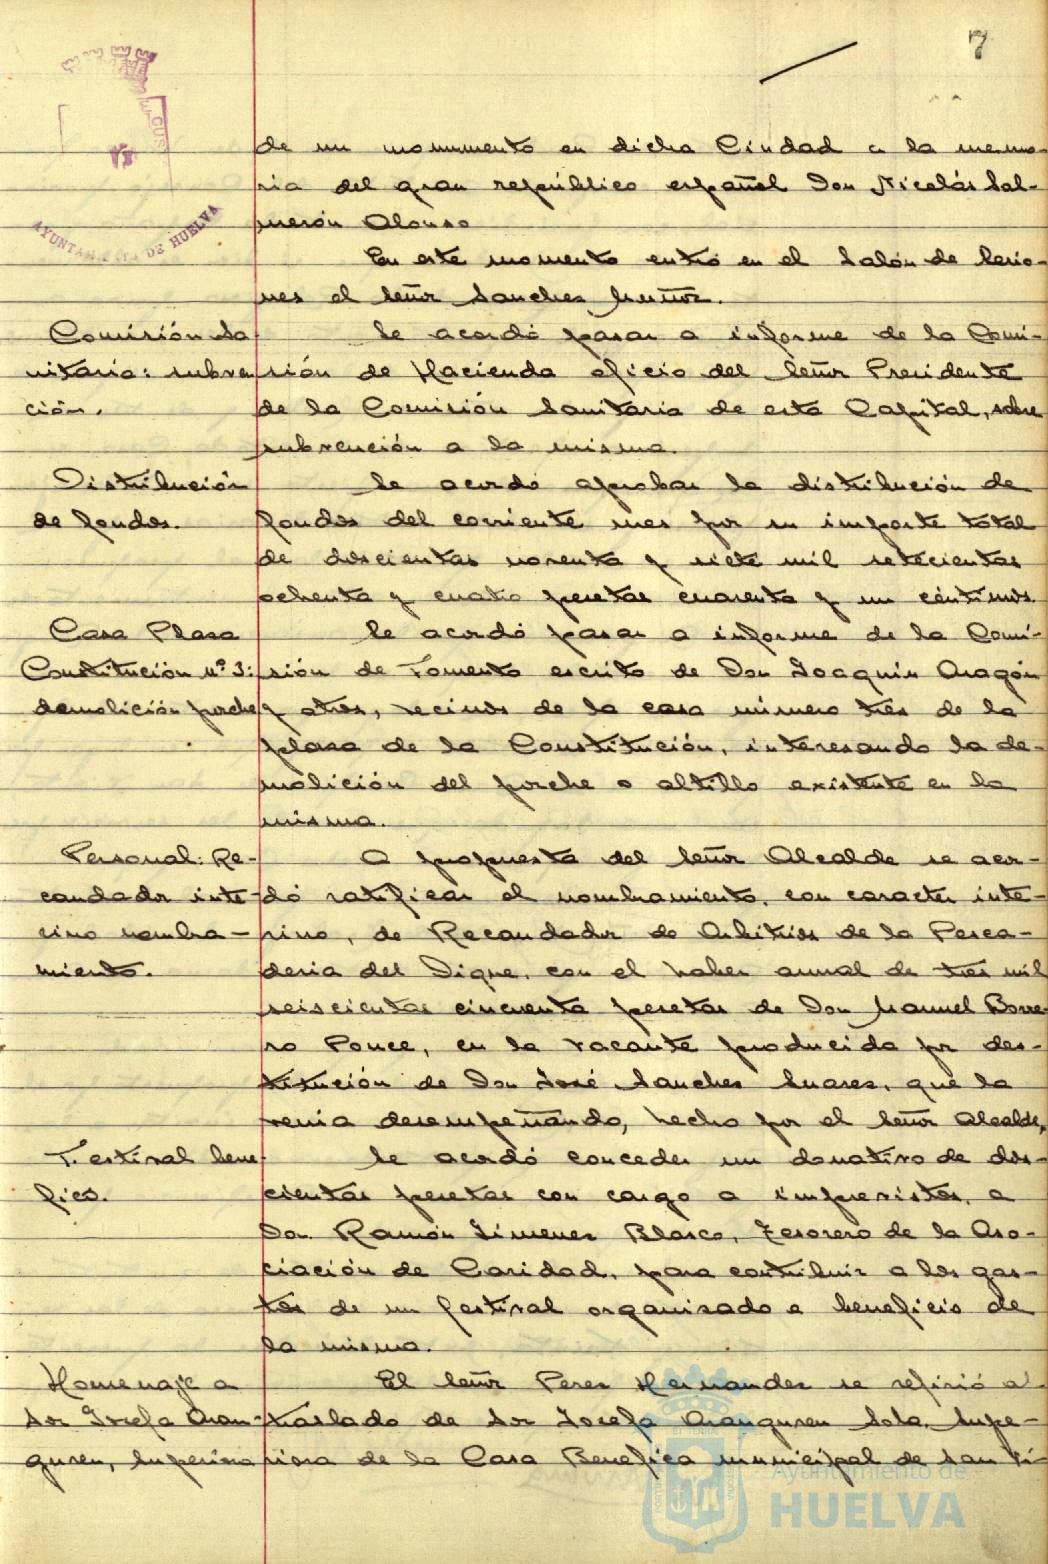 7
AYUNTAMIENTO DE HUELVA
de un monumento en dicha Ciudad a la memo-
ria del gran repúblico español Don Nicolás Sal-
merón Alonso
En este momento entró en el Salón de Sesio-
nes el Señor Sanchez Muñoz.
Comisión Sa
nitaria: subven
ción.
Se acordó pasar a informe de la Comi-
sión de Hacienda oficio del Señor Presidente
de la Comisión Sanitaria de esta Capital, sobre
subvención a la misma.
Distribución
de fondos.
Se acordó aprobar la distribución de
fondos del corriente mes por su importe total
de doscientas noventa y siete mil setecientas
ochenta y cuatro pesetas cuarenta y un céntimos.
Casa Plaza
Constitución nº 3:
demolición porche
Se acordó pasar a informe de la Comi-
sión de Fomento escrito de Don Joaquin Aragón
y otros, vecinos de la casa número tres de la
plaza de la Constitución, interesando la de-
molición del porche o altillo existente en la
misma.
Personal: Re-
caudador inte-
rino nombra-
miento.
A propuesta del Señor Alcalde se acor-
dó ratificar el nombramiento, con caracter inte-
rino, de Recaudador de Arbitrios de la Pesca-
deria del Dique, con el haber anual de tres mil
seiscientas cincuenta pesetas de Don Manuel Borre
ro Ponce, en la vacante producida por des-
titución de Don José Sanchez Suarez, que la
venia desempeñando, hecho por el Señor Alcalde,
Festival bene
fico.
Se acordó conceder un donativo de dos-
cientas pesetas con cargo a imprevistos, a
Don Ramón Jimenez Blasco, Tesorero de la Aso-
ciación de Caridad, para contribuir a los gas-
tos de un festival organizado a beneficio de
la misma.
Homenaje a
Sor Josefa Aran-
guren, Superiora
El Señor Perez Hernandez se refirió al
traslado de Sor Josefa Aranguren Sola, Supe-
riora de la Casa Benefica municipal de San Vi-
Ayuntamiento de
HUELVA